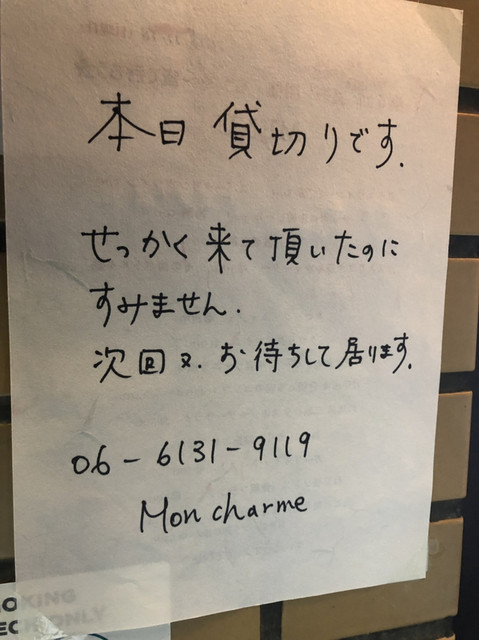 本日 貸切りです.
せっかく来て頂いたのに
すみません.
次回又. お待ちして居ります.
06-6131-9119
Mon charme
ONLY